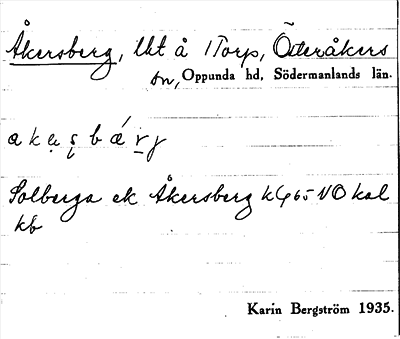 Åkersberg, lht å 1 Torp, Österåkers
sn, Oppunda hd, Södermanlands län.
Solberga ek Åkersberg k G 65 NO kal
kb
Karin Bergström 1935.